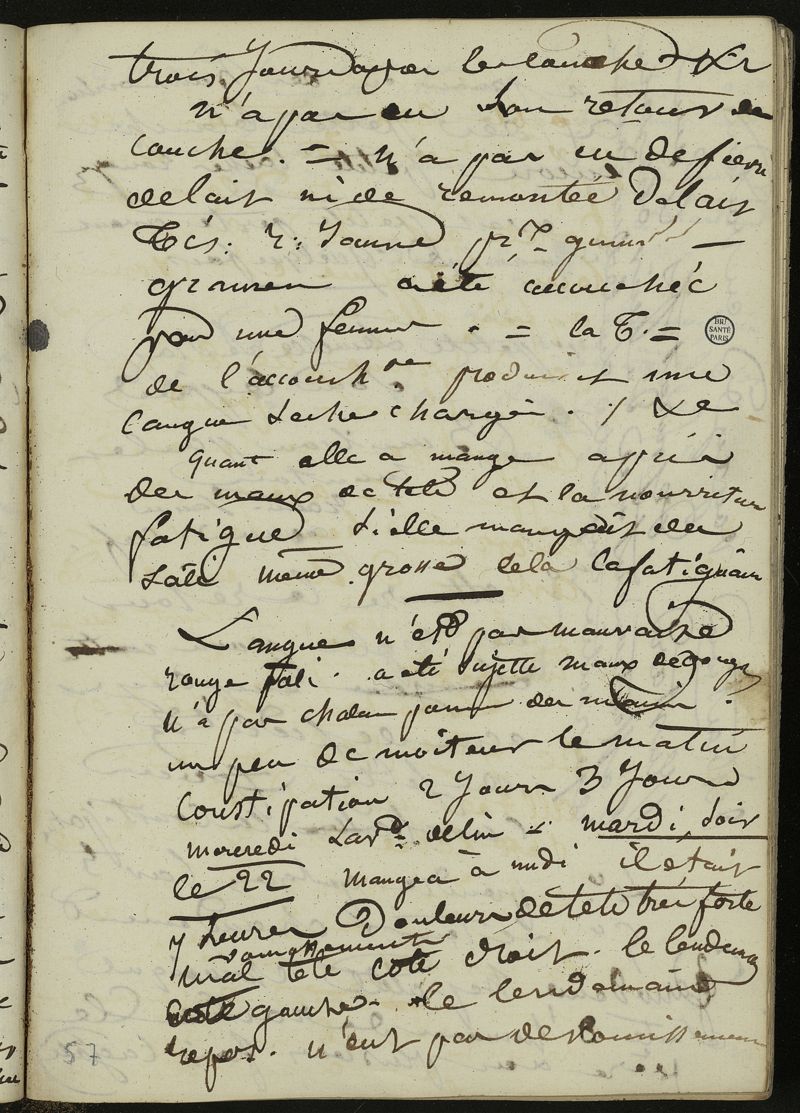 trois jours après les couches &
n'a pas eu son retour de
couche. = n'a pas eu de fievre
de lait ni de remontée de lait
2: jeanne
a été accouchée
par une femme . = la T. =
de l'accouch produisit une
langue seche chargée . / &
quant elle a mangé après
des maux de tete et la nourriture
fatigue si elle mangeait des
même grosse cela la fatiguait
Langue n'est pas mauvaise
rouge pale . a été sujette maux de gorge
n'a pas chaleur paume des mains .
un peu de moiteur le matin
Constipation 2 jours 3 jours
mercredi de lin = mardi soir
le 22 mangea à midi il était
7 heures Douleurs de tete très forte
vomissements
mal tete coté droit . le lendemain
coté gauche . le lendemain
repos . n'eut pas de vomissement
57
BIU
SANTÉ
PARIS